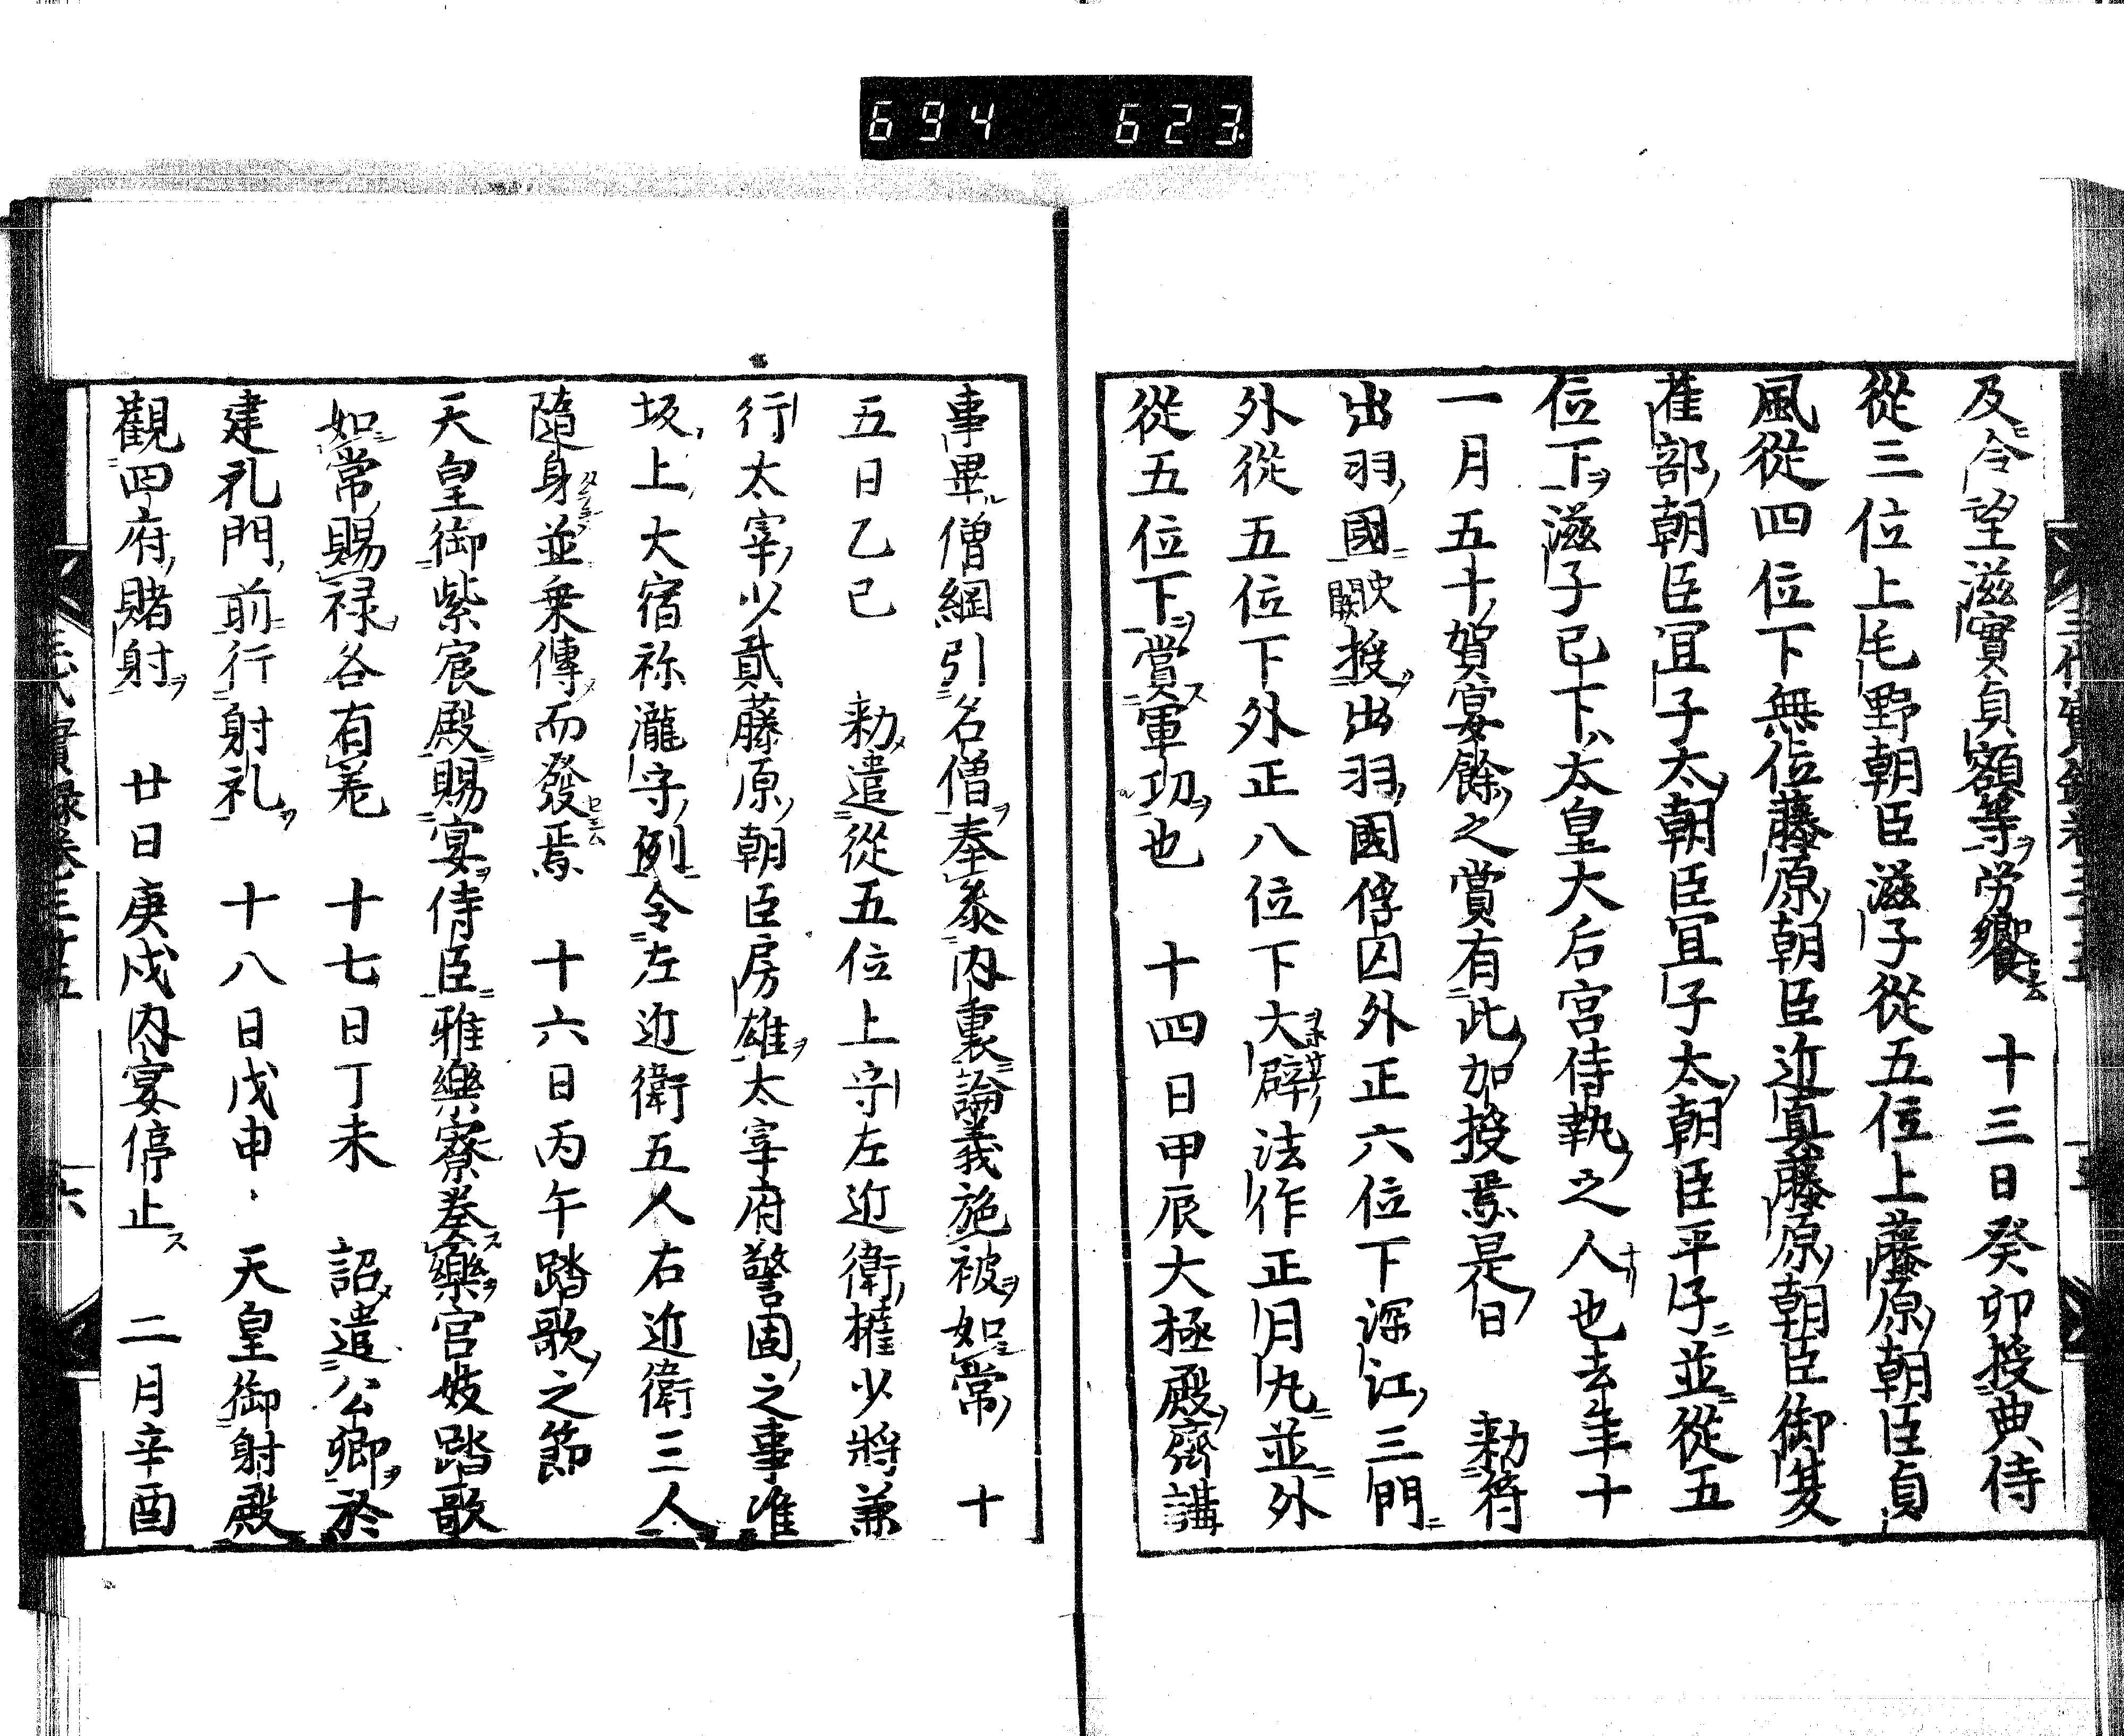 694 623
及令望滋實貞額等労饗 十三日癸卯授典侍
從三位上毛野朝臣滋子從五位上藤原朝臣貞
風從四位下無位藤原朝臣近真藤原朝臣御茂
萑部朝臣宜子太朝臣宜子太朝臣平子並從五
位下滋子已下太皇大后宮侍執之人也去年十
一月五十賀宴餘之賞有此加授焉是日 勅符
出羽國欤闕授出羽國俘囚外正六位下深江三門
外從五位下外正八位下大辟法作正月丸並外
從五位下賞軍功也 十四日甲辰大極殿齋講
事畢僧綱引名僧奉參内裏論義施被如常 十
五日乙已 勅遣從五位上守左近衛權少將兼
行太宰少貳藤原朝臣房雄太宰府警固之事准
坂上大宿祢瀧守例令左近衛五人右近衛三人
隨身並乗傳而發焉 十六日丙午踏歌之節
天皇御紫宸殿賜宴侍臣雅樂寮奏樂宮妓踏歌
如常賜禄各有差 十七日丁未 詔遣公卿於
建礼門前行射礼 十八日戊申 天皇御射殿
觀四府賭射 廿日庚戌内宴停止 二月辛酉
三代實録卷三十五 六